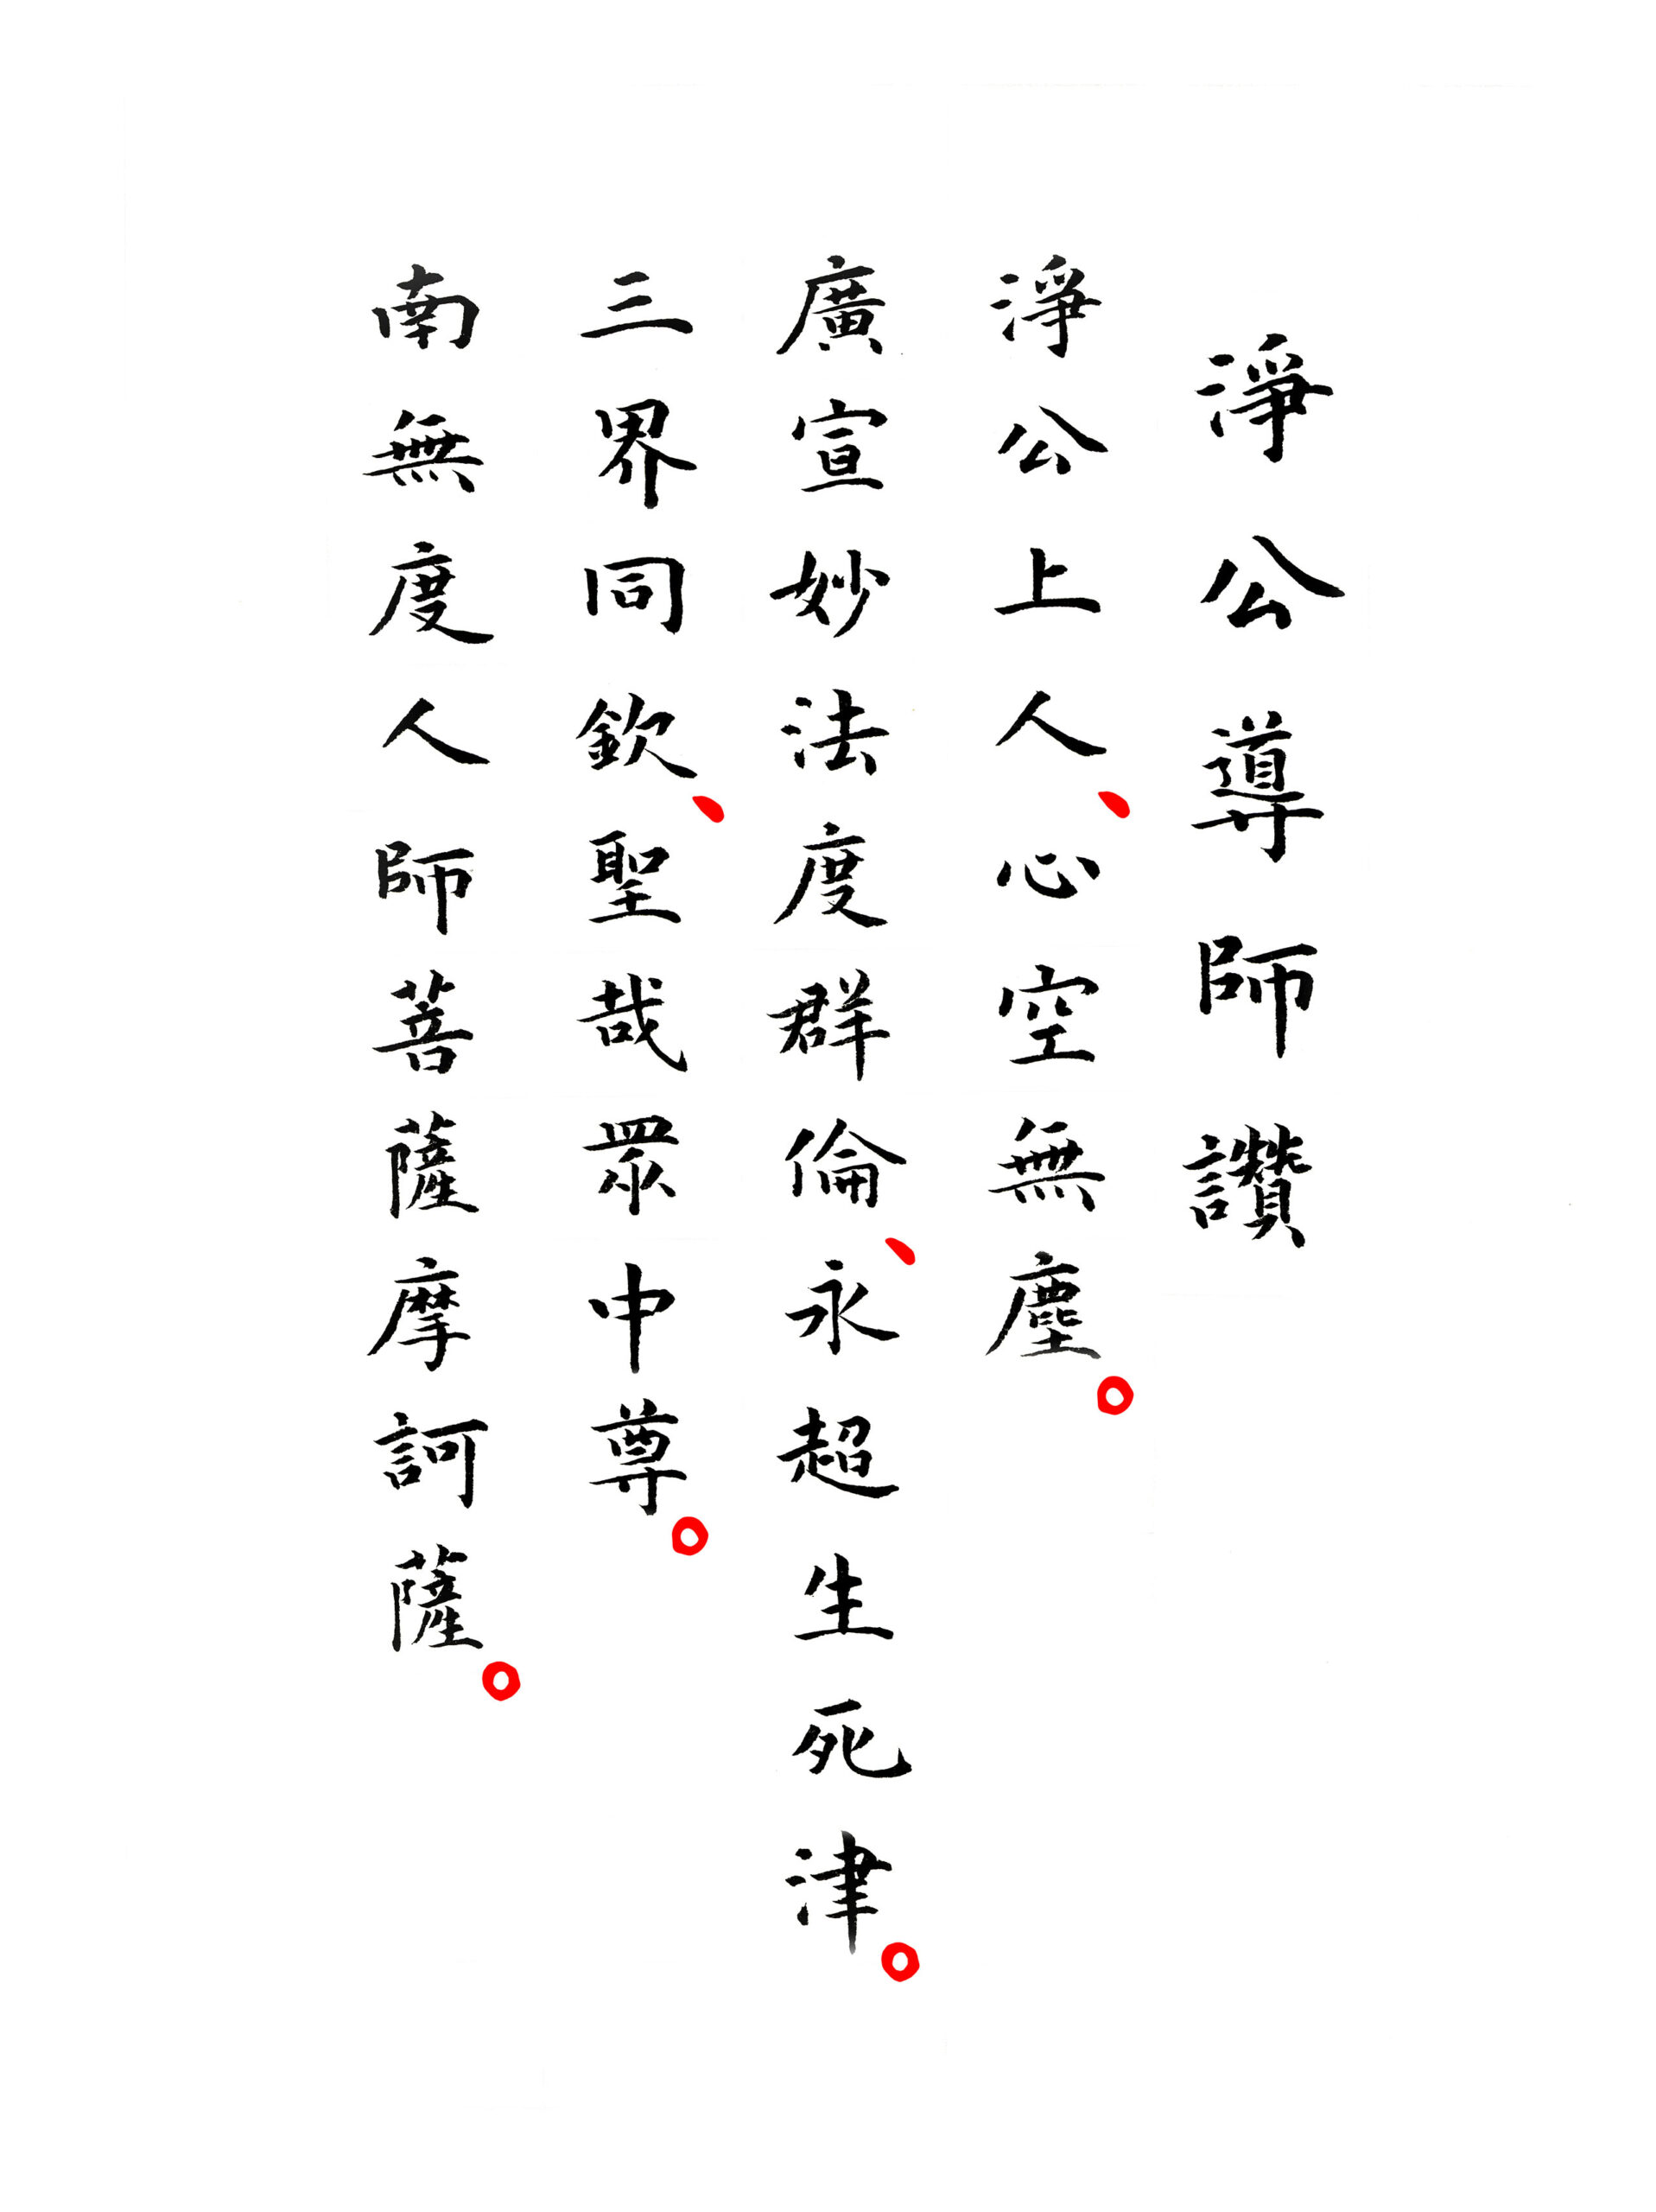 淨公導師讚
淨公上人、心空無塵。
廣宣妙法度群倫、永超生死津。
三界同欽、聖哉眾中尊。
南無度人師菩薩摩訶薩。